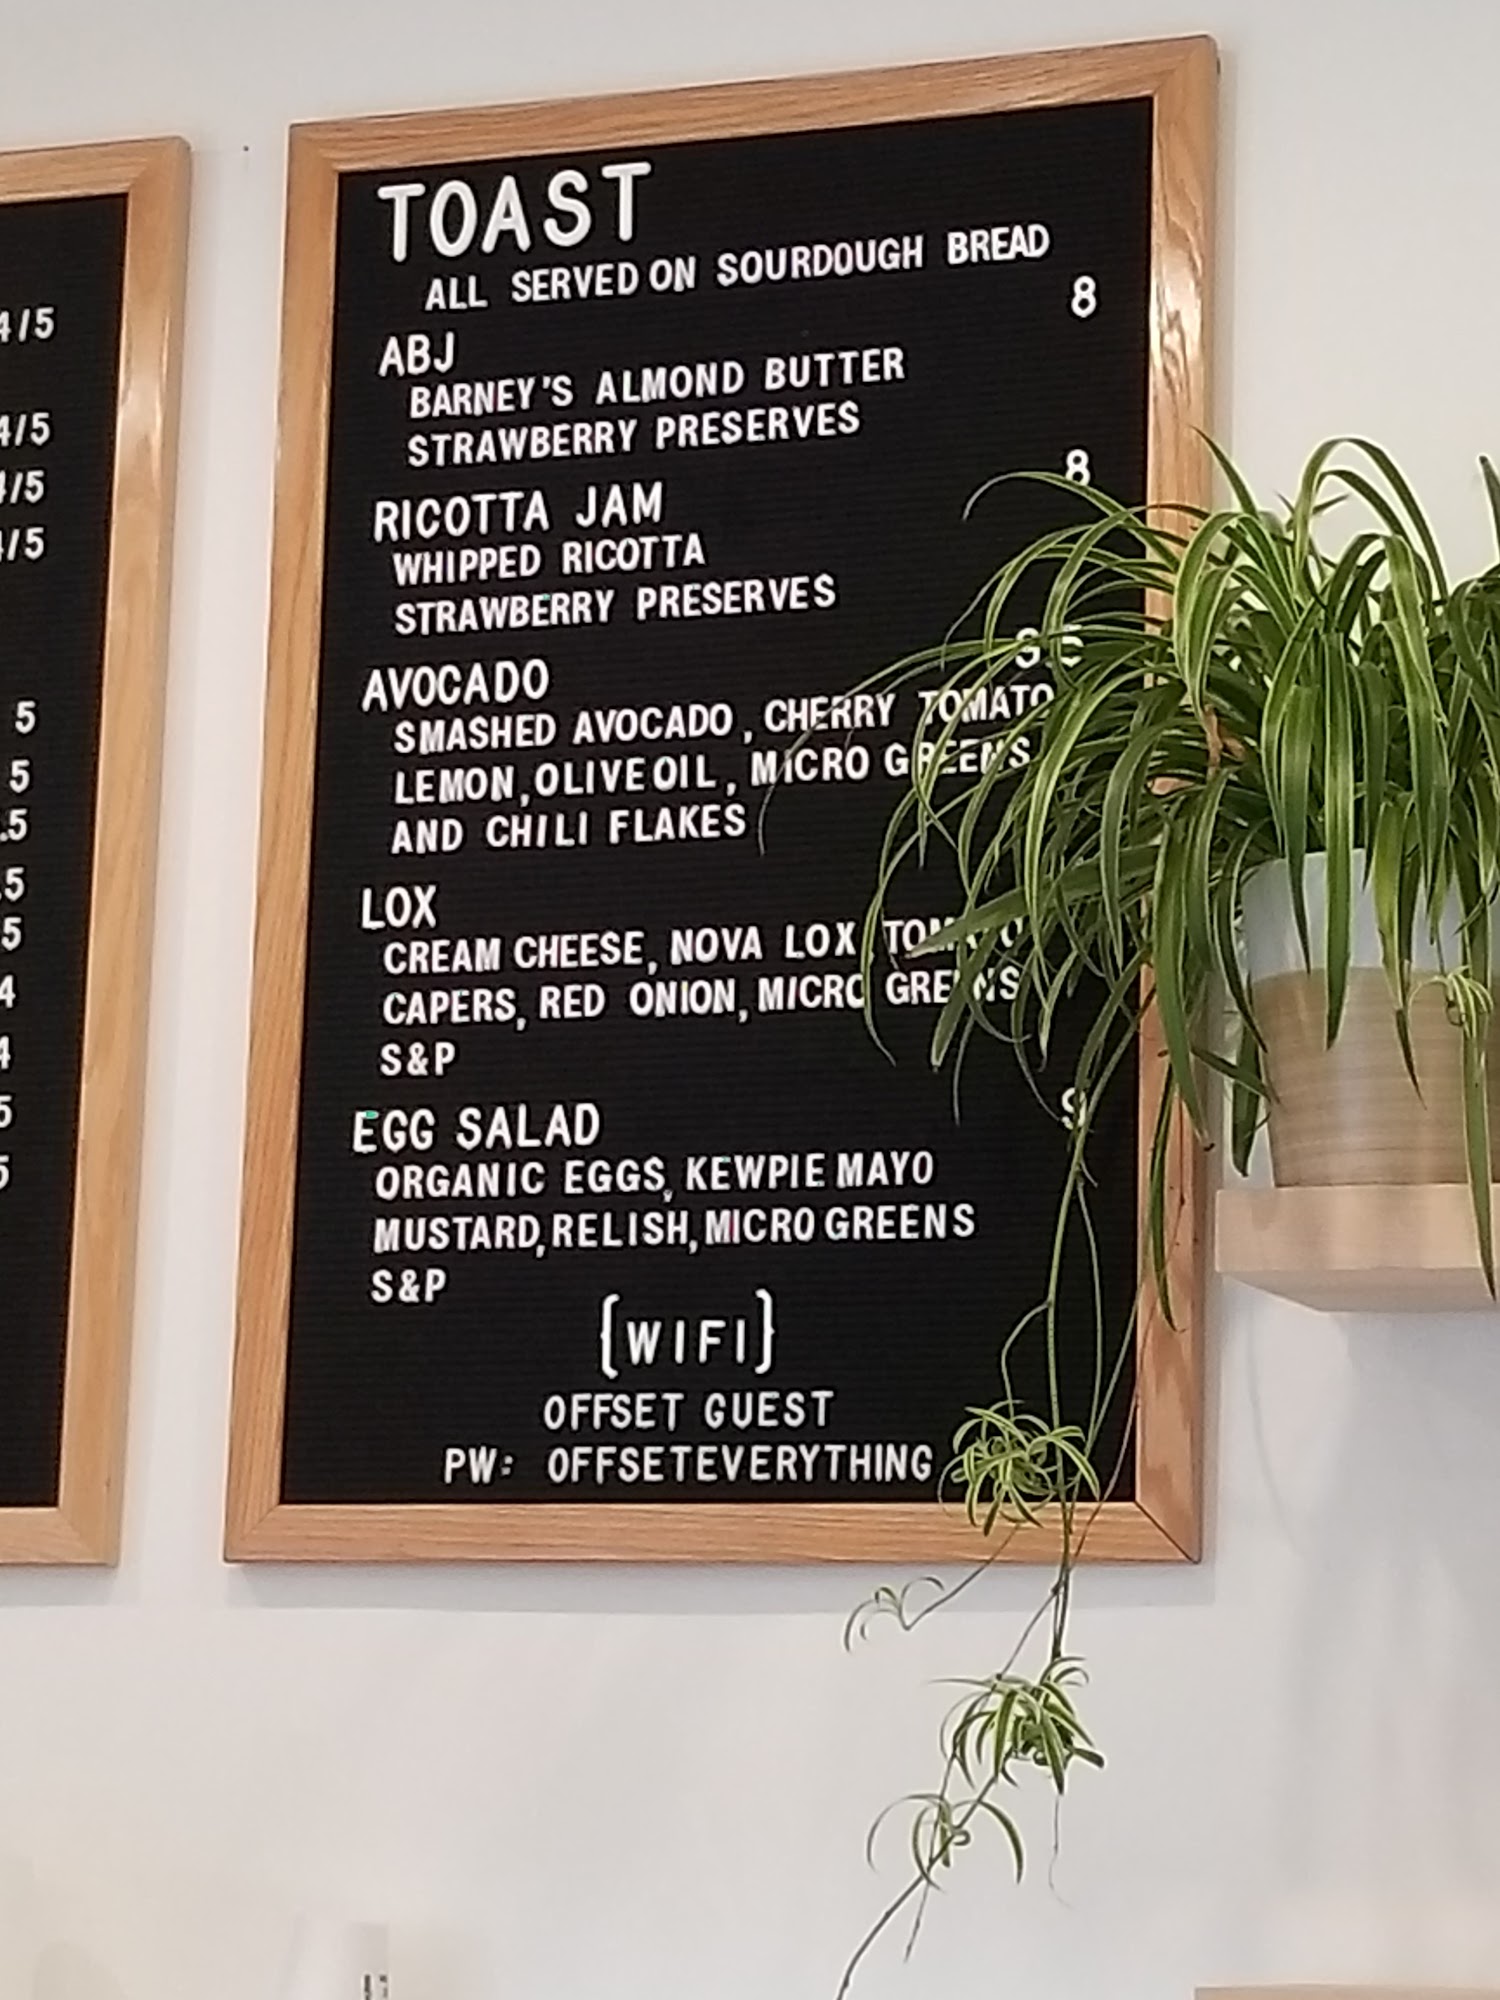 4/5
4/5
4/5
4/5
5
5
.5
.5
5
4
4
5
5
TOAST
ALL SERVED ON SOURDOUGH BREAD
ABJ 8
BARNEY'S ALMOND BUTTER
STRAWBERRY PRESERVES
RICOTTA JAM 8
WHIPPED RICOTTA
STRAWBERRY PRESERVES
AVOCADO
SMASHED AVOCADO, CHERRY TOMATO
LEMON, OLIVE OIL, MICRO GREENS
AND CHILI FLAKES
LOX
CREAM CHEESE, NOVA LOX TOMATO
CAPERS, RED ONION, MICRO GREENS
S&P
EGG SALAD 9
ORGANIC EGGS, KEWPIE MAYO
MUSTARD, RELISH, MICRO GREENS
S&P
{WIFI}
OFFSET GUEST
PW: OFFSETEVERYTHING